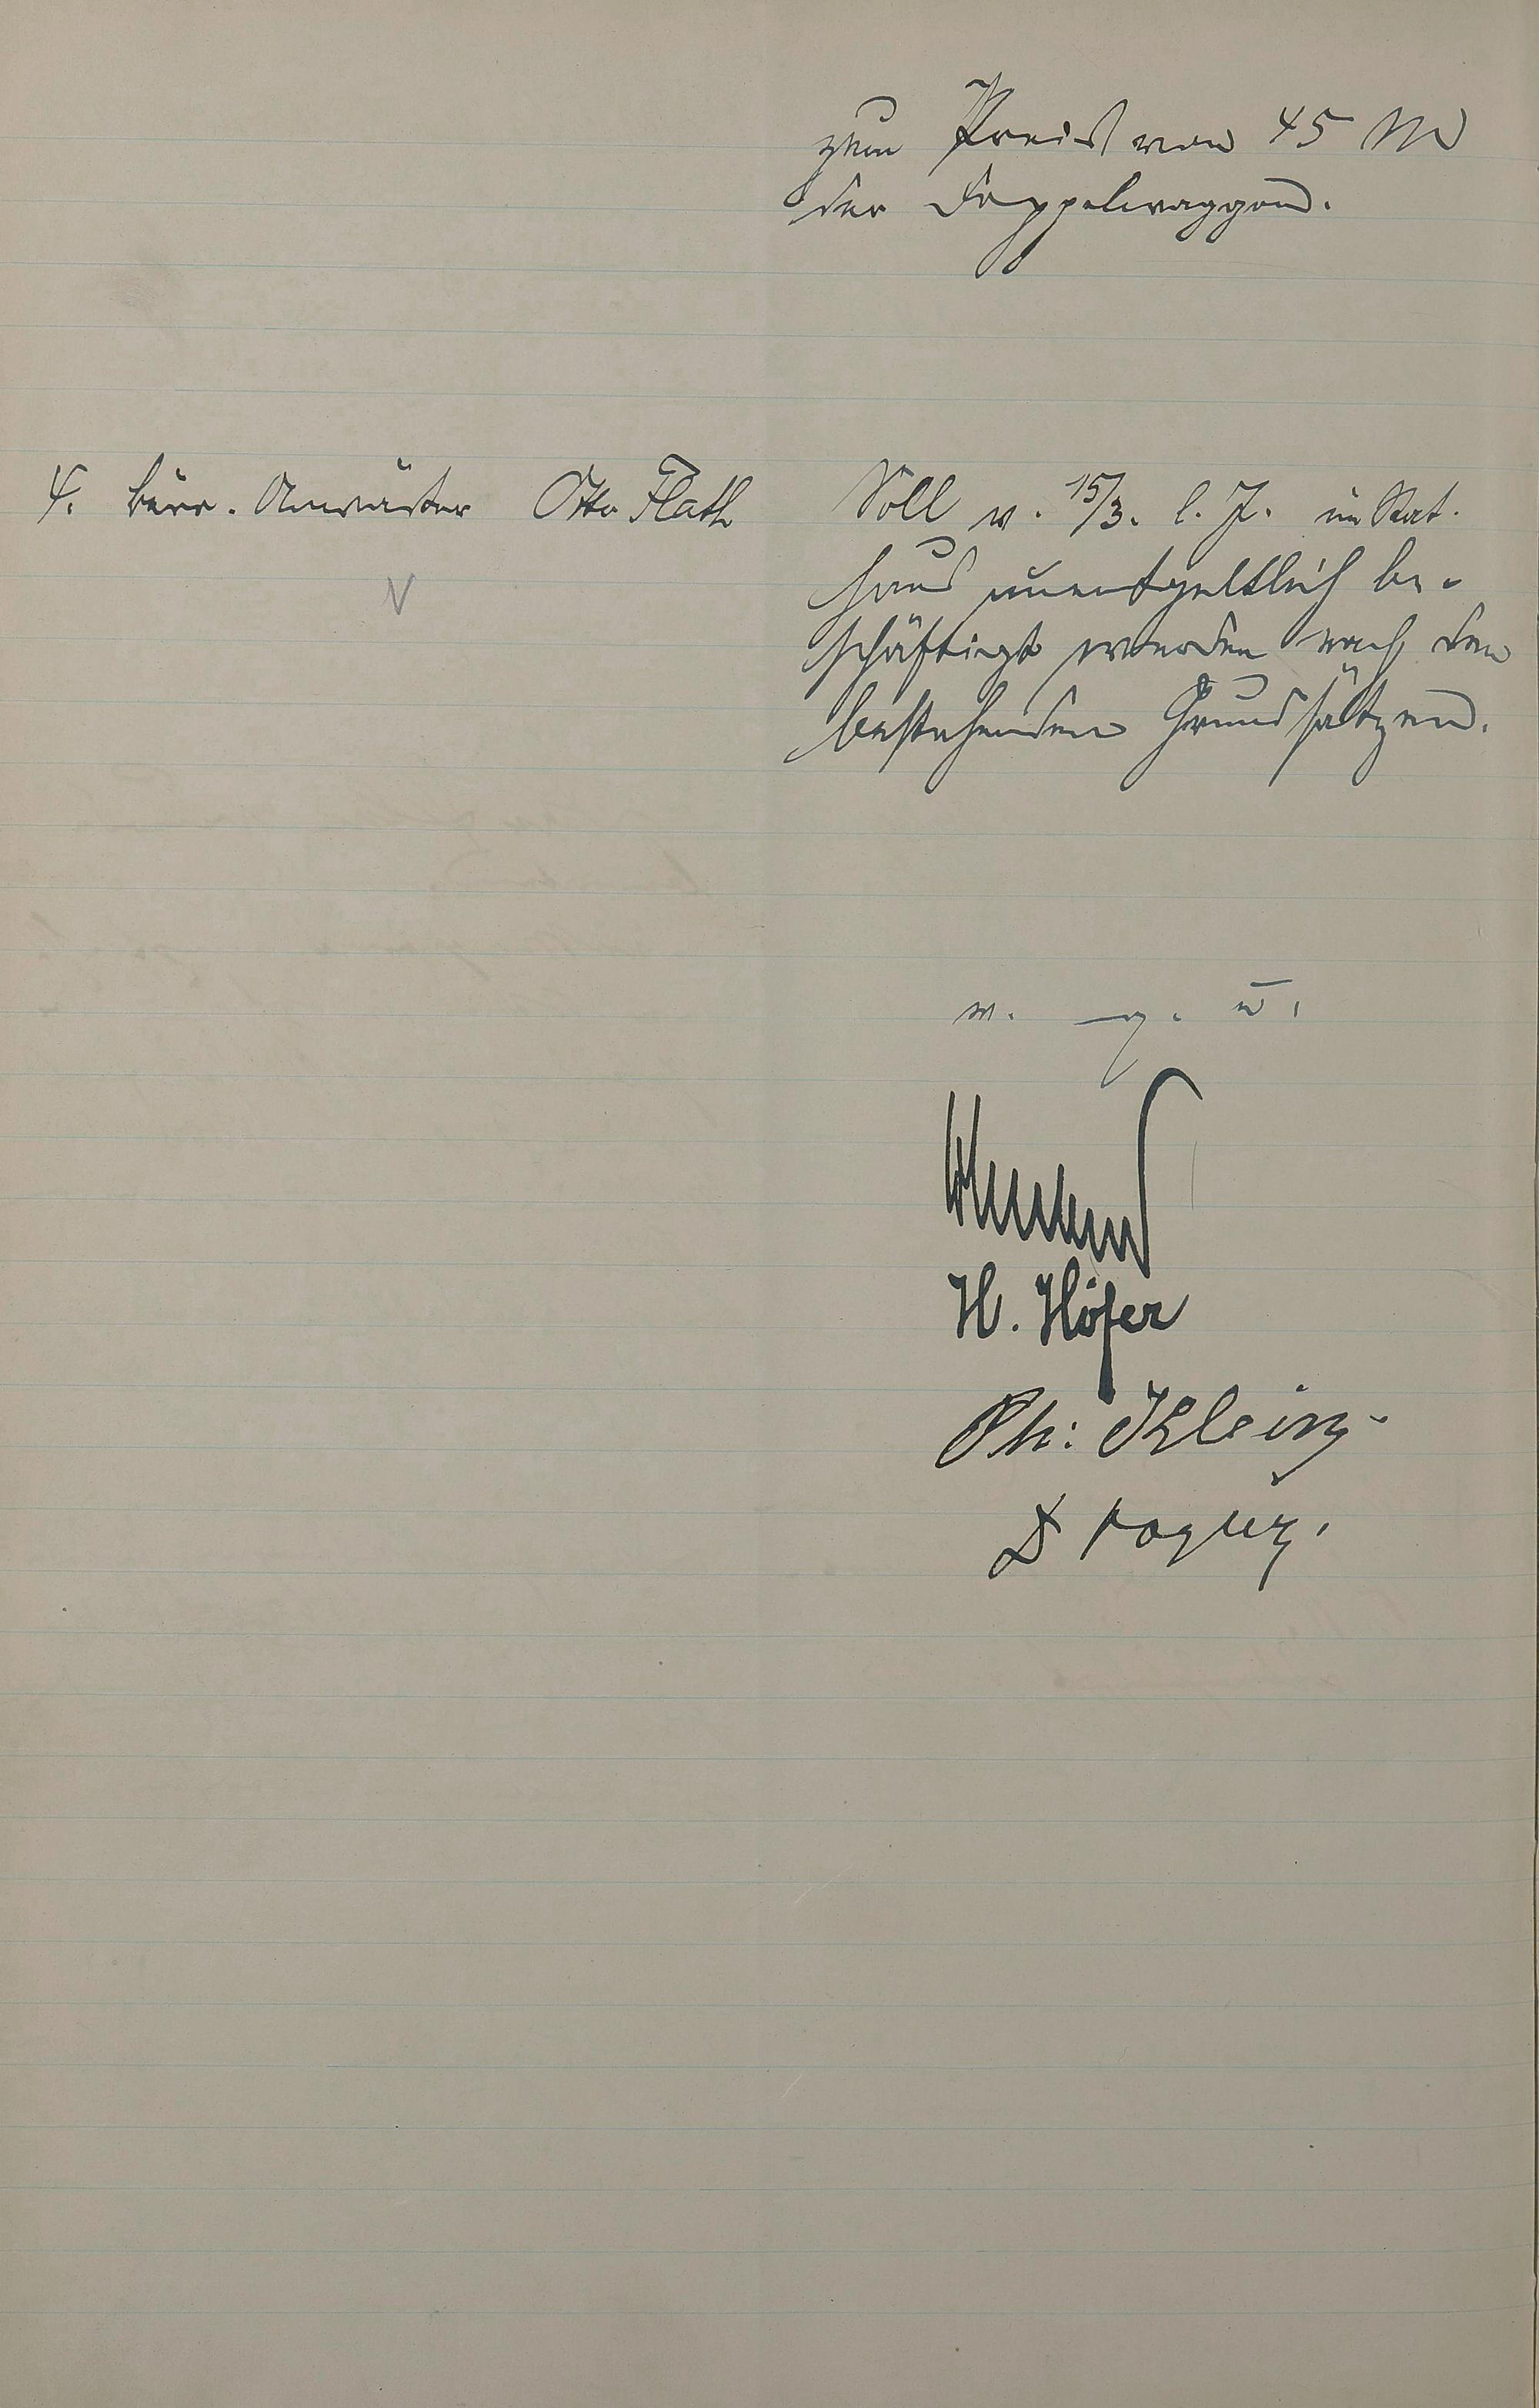 zum Preis von 45 M
der Doppelwaggon.
4. Büro-Anwärter Otto Flath
Soll v. 15/3. l. J. im Rat-
haus unentgeltlich be-
schäftigt werden nach den
bestehenden Grundsätzen.
v. g. u.
H. Höfer
Ph: Klein